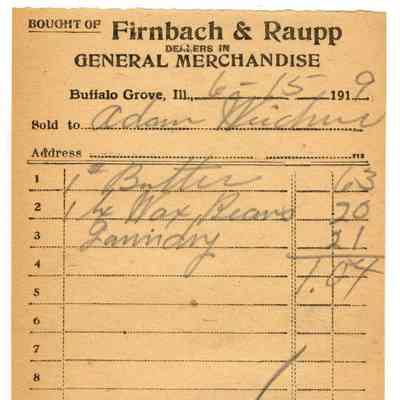 BOUGHT OF Firnbach & Raupp
DEALERS IN
GENERAL MERCHANDISE
Buffalo Grove, Ill., 6-15 1919
Sold to Adam
Address
1 1# Butter 63
2 1 Wax Beans 20
3 21
4 1.04
5
6
7
8